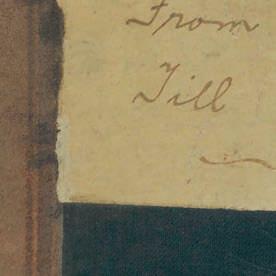 From
Till